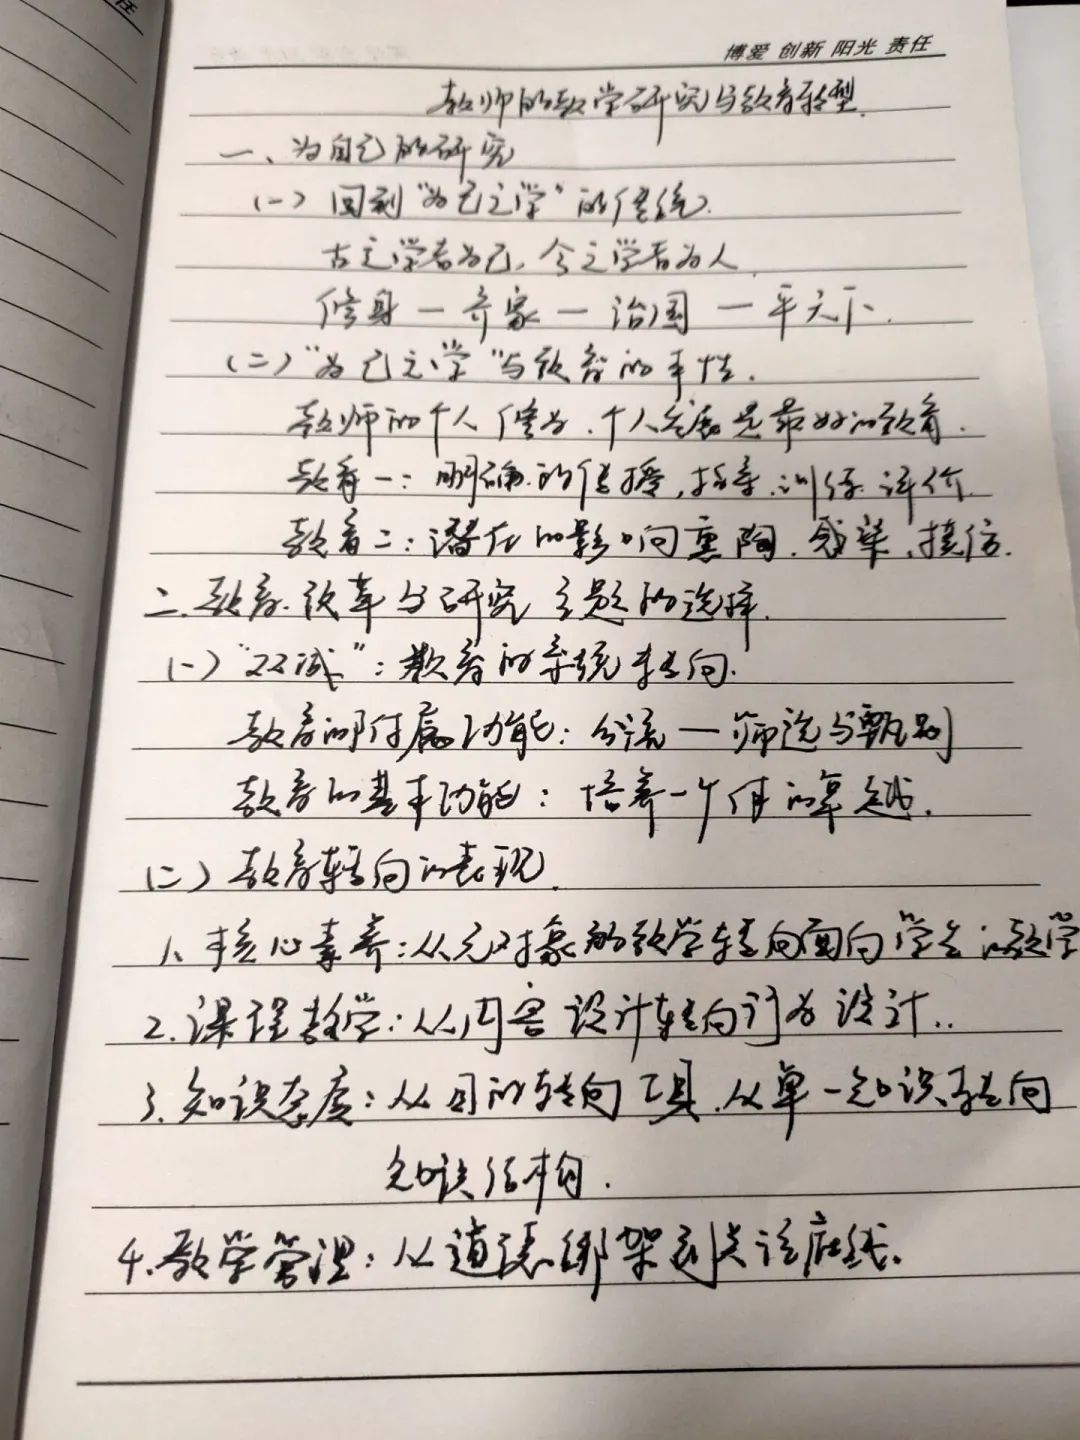 任
博爱 创新 阳光 责任
教师的教学研究与教育转型.
一、为自己的研究
(一) 回到“为己之学”的传统.
古之学者为己,今之学者为人.
修身 — 齐家 — 治国 — 平天下.
(二)“为己之学”与教育的本性.
教师的个人修为、个人发展是最好的教育.
教育一:明确的传授,指导、训练、评价.
教育二:潜在的影响向熏陶、感染、模仿.
二、教育改革与研究主题的选择.
(一)“双减”:教育的系统转向.
教育的附属功能:分流 — 筛选与甄别
教育的基本功能:培养一个体的卓越.
(二) 教育转向的表现.
1、核心素养:从无对象的教学转向面向学生的教学
2.课程教学:从内容设计转向行为设计..
3.知识态度:从目的转向工具.从单一知识转向
知识结构.
4.教学管理:从道德绑架到关注底线.